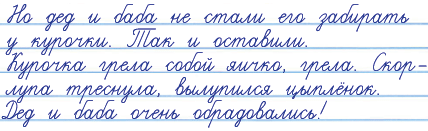 Но дед и баба не стали его забирать
у курочки. Так и оставили.
Курочка грела собой яичко, грела. Скор-
лупа треснула, вылупился цыплёнок.
Дед и баба очень обрадовались!